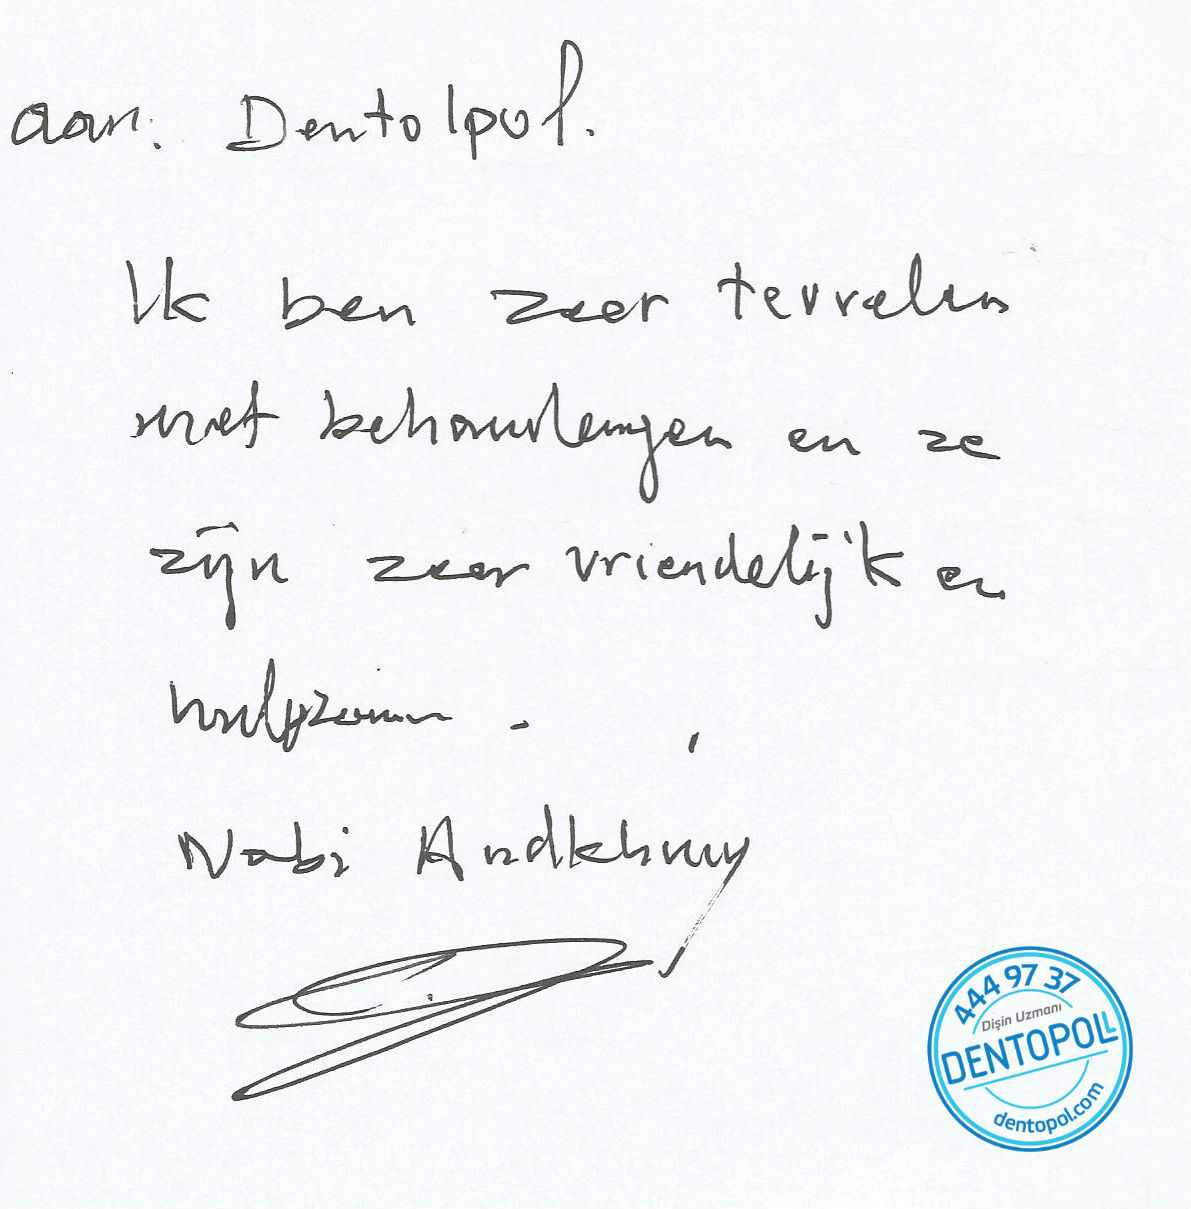 aan: Dentolpol.
Ik ben zeer tevreden
met behandelingen en ze
zijn zeer vriendelijk en
hulpzaam.
Nabi
444 97 37
Dişin Uzmanı
DENTOPOL
dentopol.com